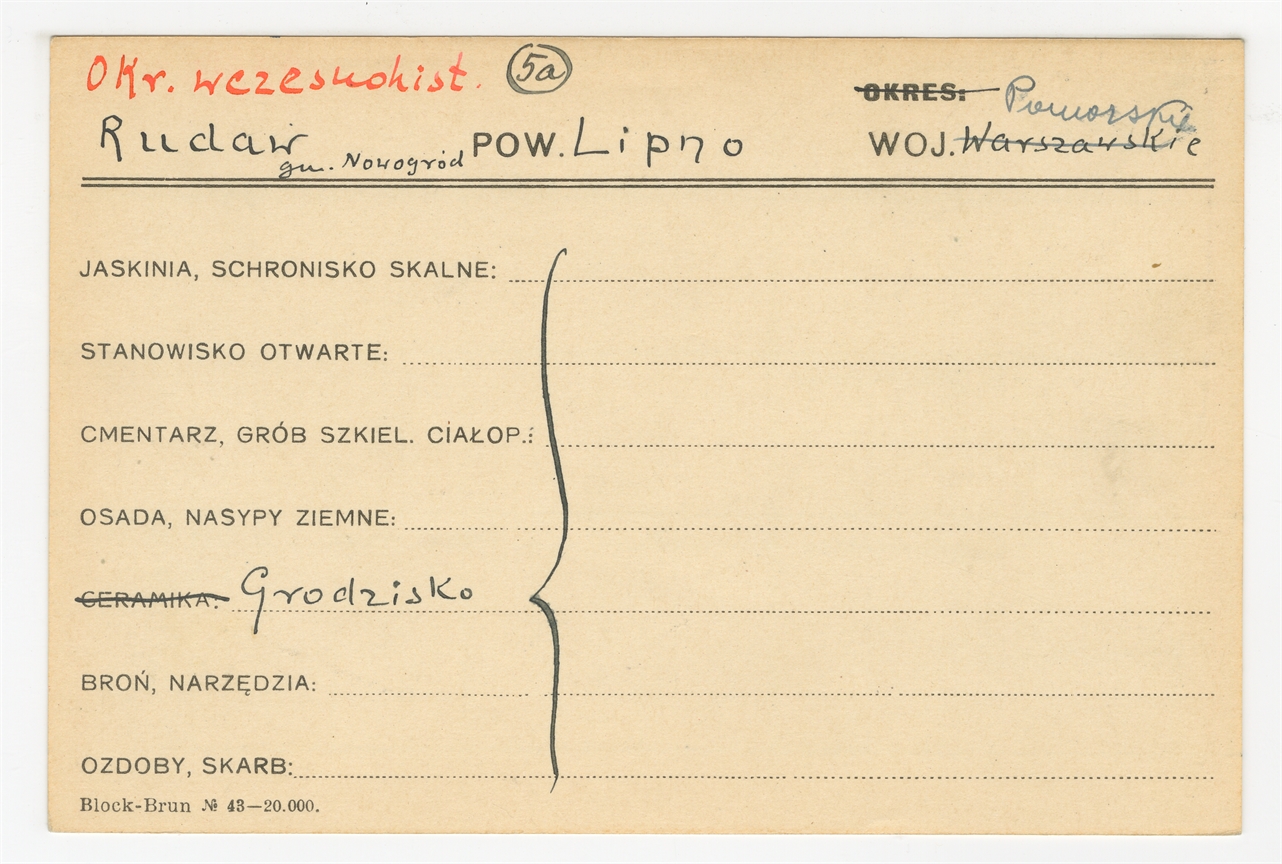 Okr. wczesnohist. 5a
OKRES: Pomorskie
Rudaw gm. Nowogród POW. Lipno WOJ. Warszawskie
JASKINIA, SCHRONISKO SKALNE:
STANOWISKO OTWARTE:
CMENTARZ, GRÓB SZKIEL. CIAŁOP.:
OSADA, NASYPY ZIEMNE:
CERAMIKA: Grodzisko
BROŃ, NARZĘDZIA:
OZDOBY, SKARB:
Block-Brun № 43—20.000.